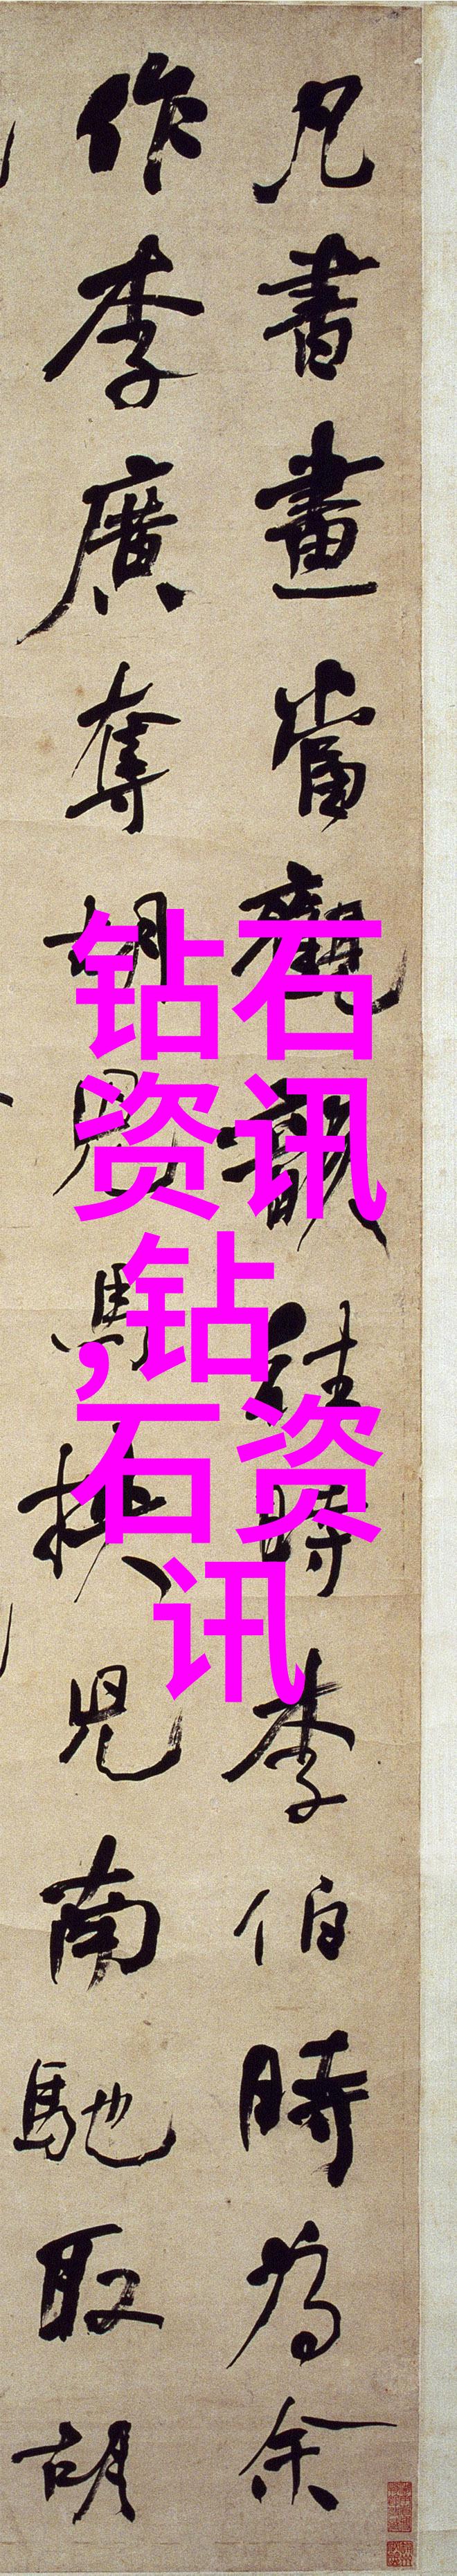 凡書畫當觀韻往時李伯時為余
作李廣奪胡兒馬挾兒南馳取胡
钻石
资讯
,钻
石资
讯